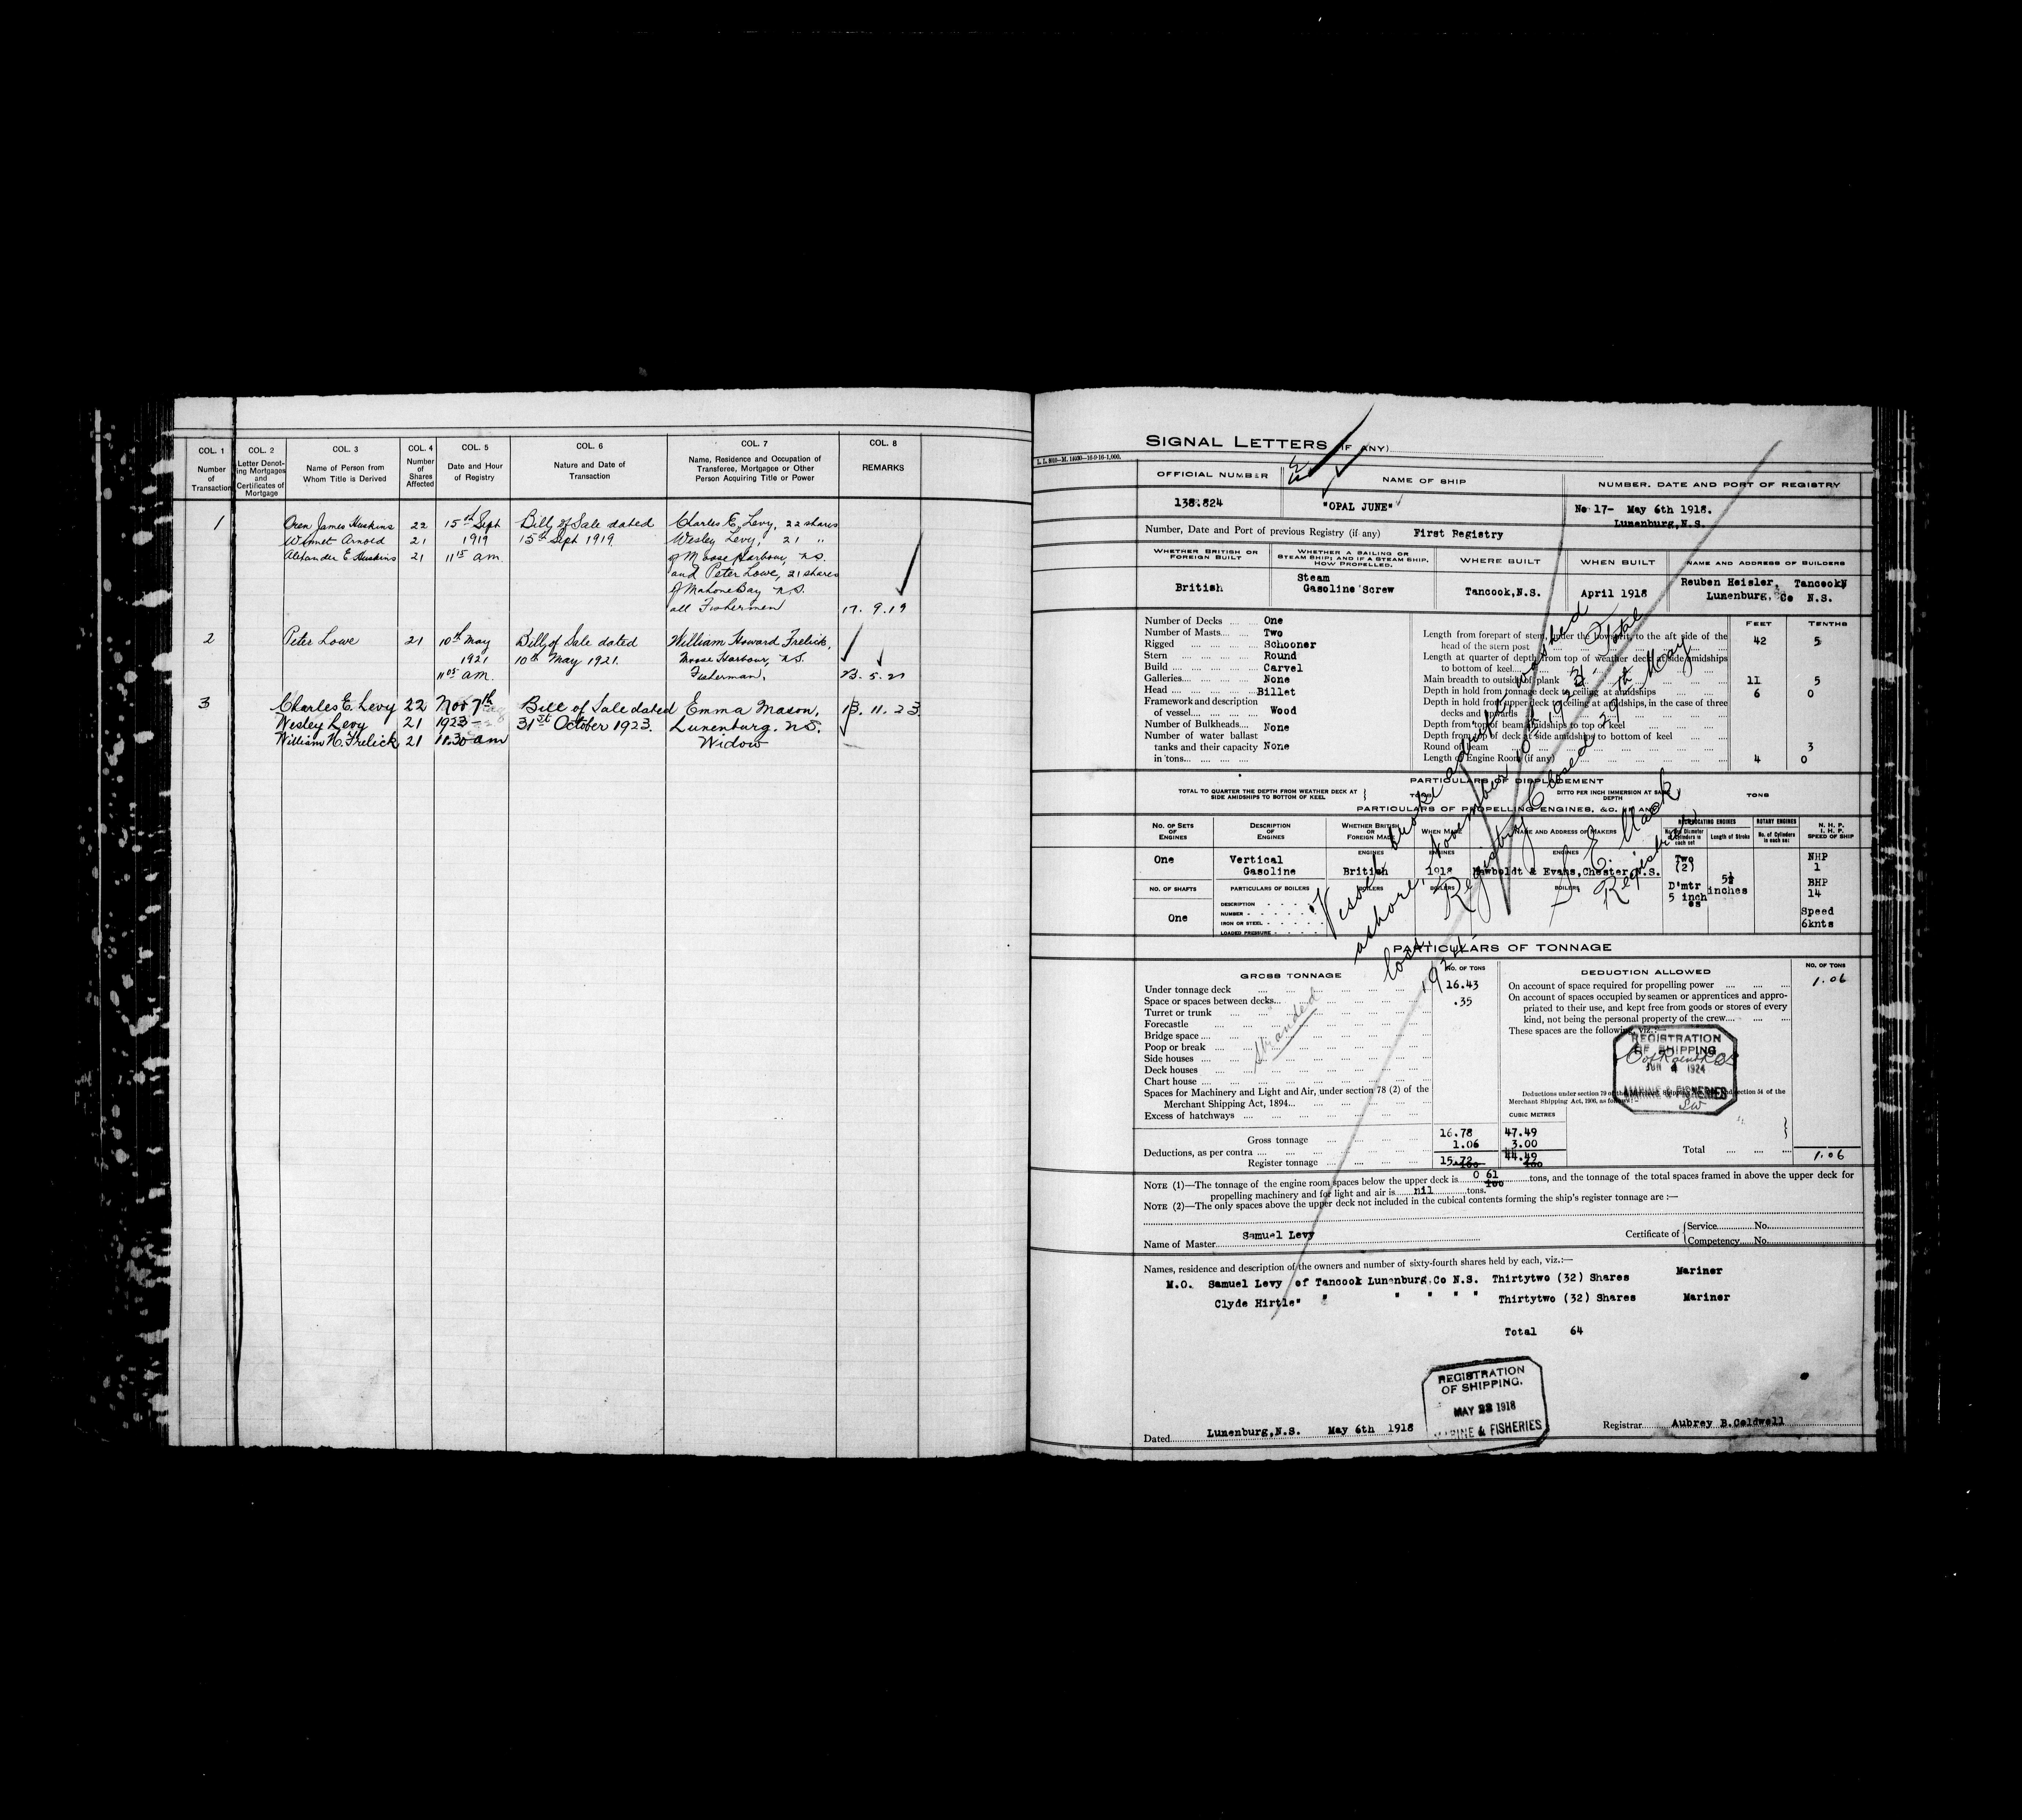 COL. 1 COL. 2 COL. 3 COL. 4 COL. 5 COL. 6 COL. 7 COL. 8
Number of Transaction
Letter Denoting Mortgages and Certificates of Mortgage
Name of Person from Whom Title is Derived
Number of Shares Affected
Date and Hour of Registry
Nature and Date of Transaction
Name, Residence and Occupation of Transferee, Mortgagee or Other Person Acquiring Title or Power
REMARKS
1 Oren James Huskins 22 15th Sept Bill of Sale dated Charles E. Levy, 22 shares
Arnold 21 1919 15th Sept 1919 Wesley Levy, 21 "
Alexander E Huskins 21 11 15 am of Moose Harbour, N.S.
and Peter Lowe, 21 shares
of Mahone Bay N.S.
all Fishermen 17. 9. 19
2 Peter Lowe 21 10th May Bill of Sale dated William Howard Frelick,
1921 10th May 1921. Moose Harbour, N.S.
11 05 am. Fisherman, 5. 21
3 Charles E. Levy 22 Nov 7th Bill of Sale dated Emma Mason, 13. 11. 23.
Wesley Levy 21 1923 31st October 1923. Lunenburg. N.S.
William H. Frelick 21 11.30 am Widow
SIGNAL LETTERS (IF ANY)
L. L. M. 14930—16-9-16-1,000.
OFFICIAL NUMBER NAME OF SHIP NUMBER, DATE AND PORT OF REGISTRY
138.824 "OPAL JUNE" No 17- May 6th 1918.
Lunenburg,N.S.
Number, Date and Port of previous Registry (if any) First Registry
WHETHER BRITISH OR FOREIGN BUILT
WHETHER A SAILING OR STEAM SHIP; AND IF A STEAM SHIP, HOW PROPELLED.
WHERE BUILT WHEN BUILT NAME AND ADDRESS OF BUILDERS
British Steam Gasoline Screw Tancook,N.S. April 1918 Reuben Heisler, Tancook
Lunenburg, Co N.S.
FEET TENTHS
Number of Decks One
Number of Masts Two
Rigged Schooner
Stern Round
Build Carvel
Galleries None
Head Billet
Framework and description of vessel Wood
Number of Bulkheads None
Number of water ballast tanks and their capacity in tons None
Length from forepart of stem, under the bowsprit, to the aft side of the head of the stern post 42 5
Length at quarter of depth from top of weather deck at side amidships to bottom of keel
Main breadth to outside of plank 11 5
Depth in hold from tonnage deck to ceiling at amidships 6 0
Depth in hold from upper deck to ceiling at amidships, in the case of three decks and upwards
Depth from top of beam amidships to top of keel
Depth from top of deck at side amidships to bottom of keel
Round of beam 3
Length of Engine Room (if any) 4 0
PARTICULARS OF DISPLACEMENT
TOTAL TO QUARTER THE DEPTH FROM WEATHER DECK AT SIDE AMIDSHIPS TO BOTTOM OF KEEL TONS
DITTO PER INCH IMMERSION AT SAME DEPTH TONS
PARTICULARS OF PROPELLING ENGINES, &C. (IF ANY)
NO. OF SETS OF ENGINES
DESCRIPTION OF ENGINES
WHETHER BRITISH OR FOREIGN MADE
WHEN MADE
NAME AND ADDRESS OF MAKERS
RECIPROCATING ENGINES
No. and Diameter of Cylinders in each set
Length of Stroke
ROTARY ENGINES
No. of Cylinders in each set
N. H. P. I. H. P. SPEED OF SHIP
ENGINES ENGINES ENGINES
One Vertical Gasoline British 1918 Newboldt & Evans,Chester,N.S. Two (2) D'mtr 5 inches 5½ inches
NHP
1
BHP
14
Speed
6knts
NO. OF SHAFTS PARTICULARS OF BOILERS BOILERS BOILERS BOILERS
One
DESCRIPTION
NUMBER
IRON OR STEEL
LOADED PRESSURE
Vessel broke adrift, washed
ashore, November 10th 1923. Total
loss. Registry Closed 29th May
1924.
E. Mack
Registrar
PARTICULARS OF TONNAGE
GROSS TONNAGE NO. OF TONS DEDUCTION ALLOWED NO. OF TONS
Under tonnage deck 16.43
Space or spaces between decks .35
Turret or trunk
Forecastle
Bridge space
Poop or break
Side houses
Deck houses
Chart house
Spaces for Machinery and Light and Air, under section 78 (2) of the Merchant Shipping Act, 1894
Excess of hatchways
Stranded
On account of space required for propelling power 1.06
On account of spaces occupied by seamen or apprentices and appropriated to their use, and kept free from goods or stores of every kind, not being the personal property of the crew
These spaces are the following, viz.:—
REGISTRATION
OF SHIPPING
JUN 4 1924
MARINE & FISHERIES
CUBIC METRES
Gross tonnage 16.78 47.49
Deductions, as per contra 1.06 3.00
Register tonnage 15.72 44.49
Total 1.06
NOTE (1)—The tonnage of the engine room spaces below the upper deck is 0 61/100 tons, and the tonnage of the total spaces framed in above the upper deck for
propelling machinery and for light and air is nil tons.
NOTE (2)—The only spaces above the upper deck not included in the cubical contents forming the ship's register tonnage are :—
Name of Master Samuel Levy
Certificate of Service No.
Competency No.
Names, residence and description of the owners and number of sixty-fourth shares held by each, viz.:—
M.O. Samuel Levy of Tancook Lunenburg,Co N.S. Thirtytwo (32) Shares Mariner
Clyde Hirtle " " " " " " Thirtytwo (32) Shares Mariner
Total 64
REGISTRATION
OF SHIPPING.
MAY 23 1918
MARINE & FISHERIES
Dated Lunenburg,N.S. May 6th 1918
Registrar Aubrey B.Caldwell